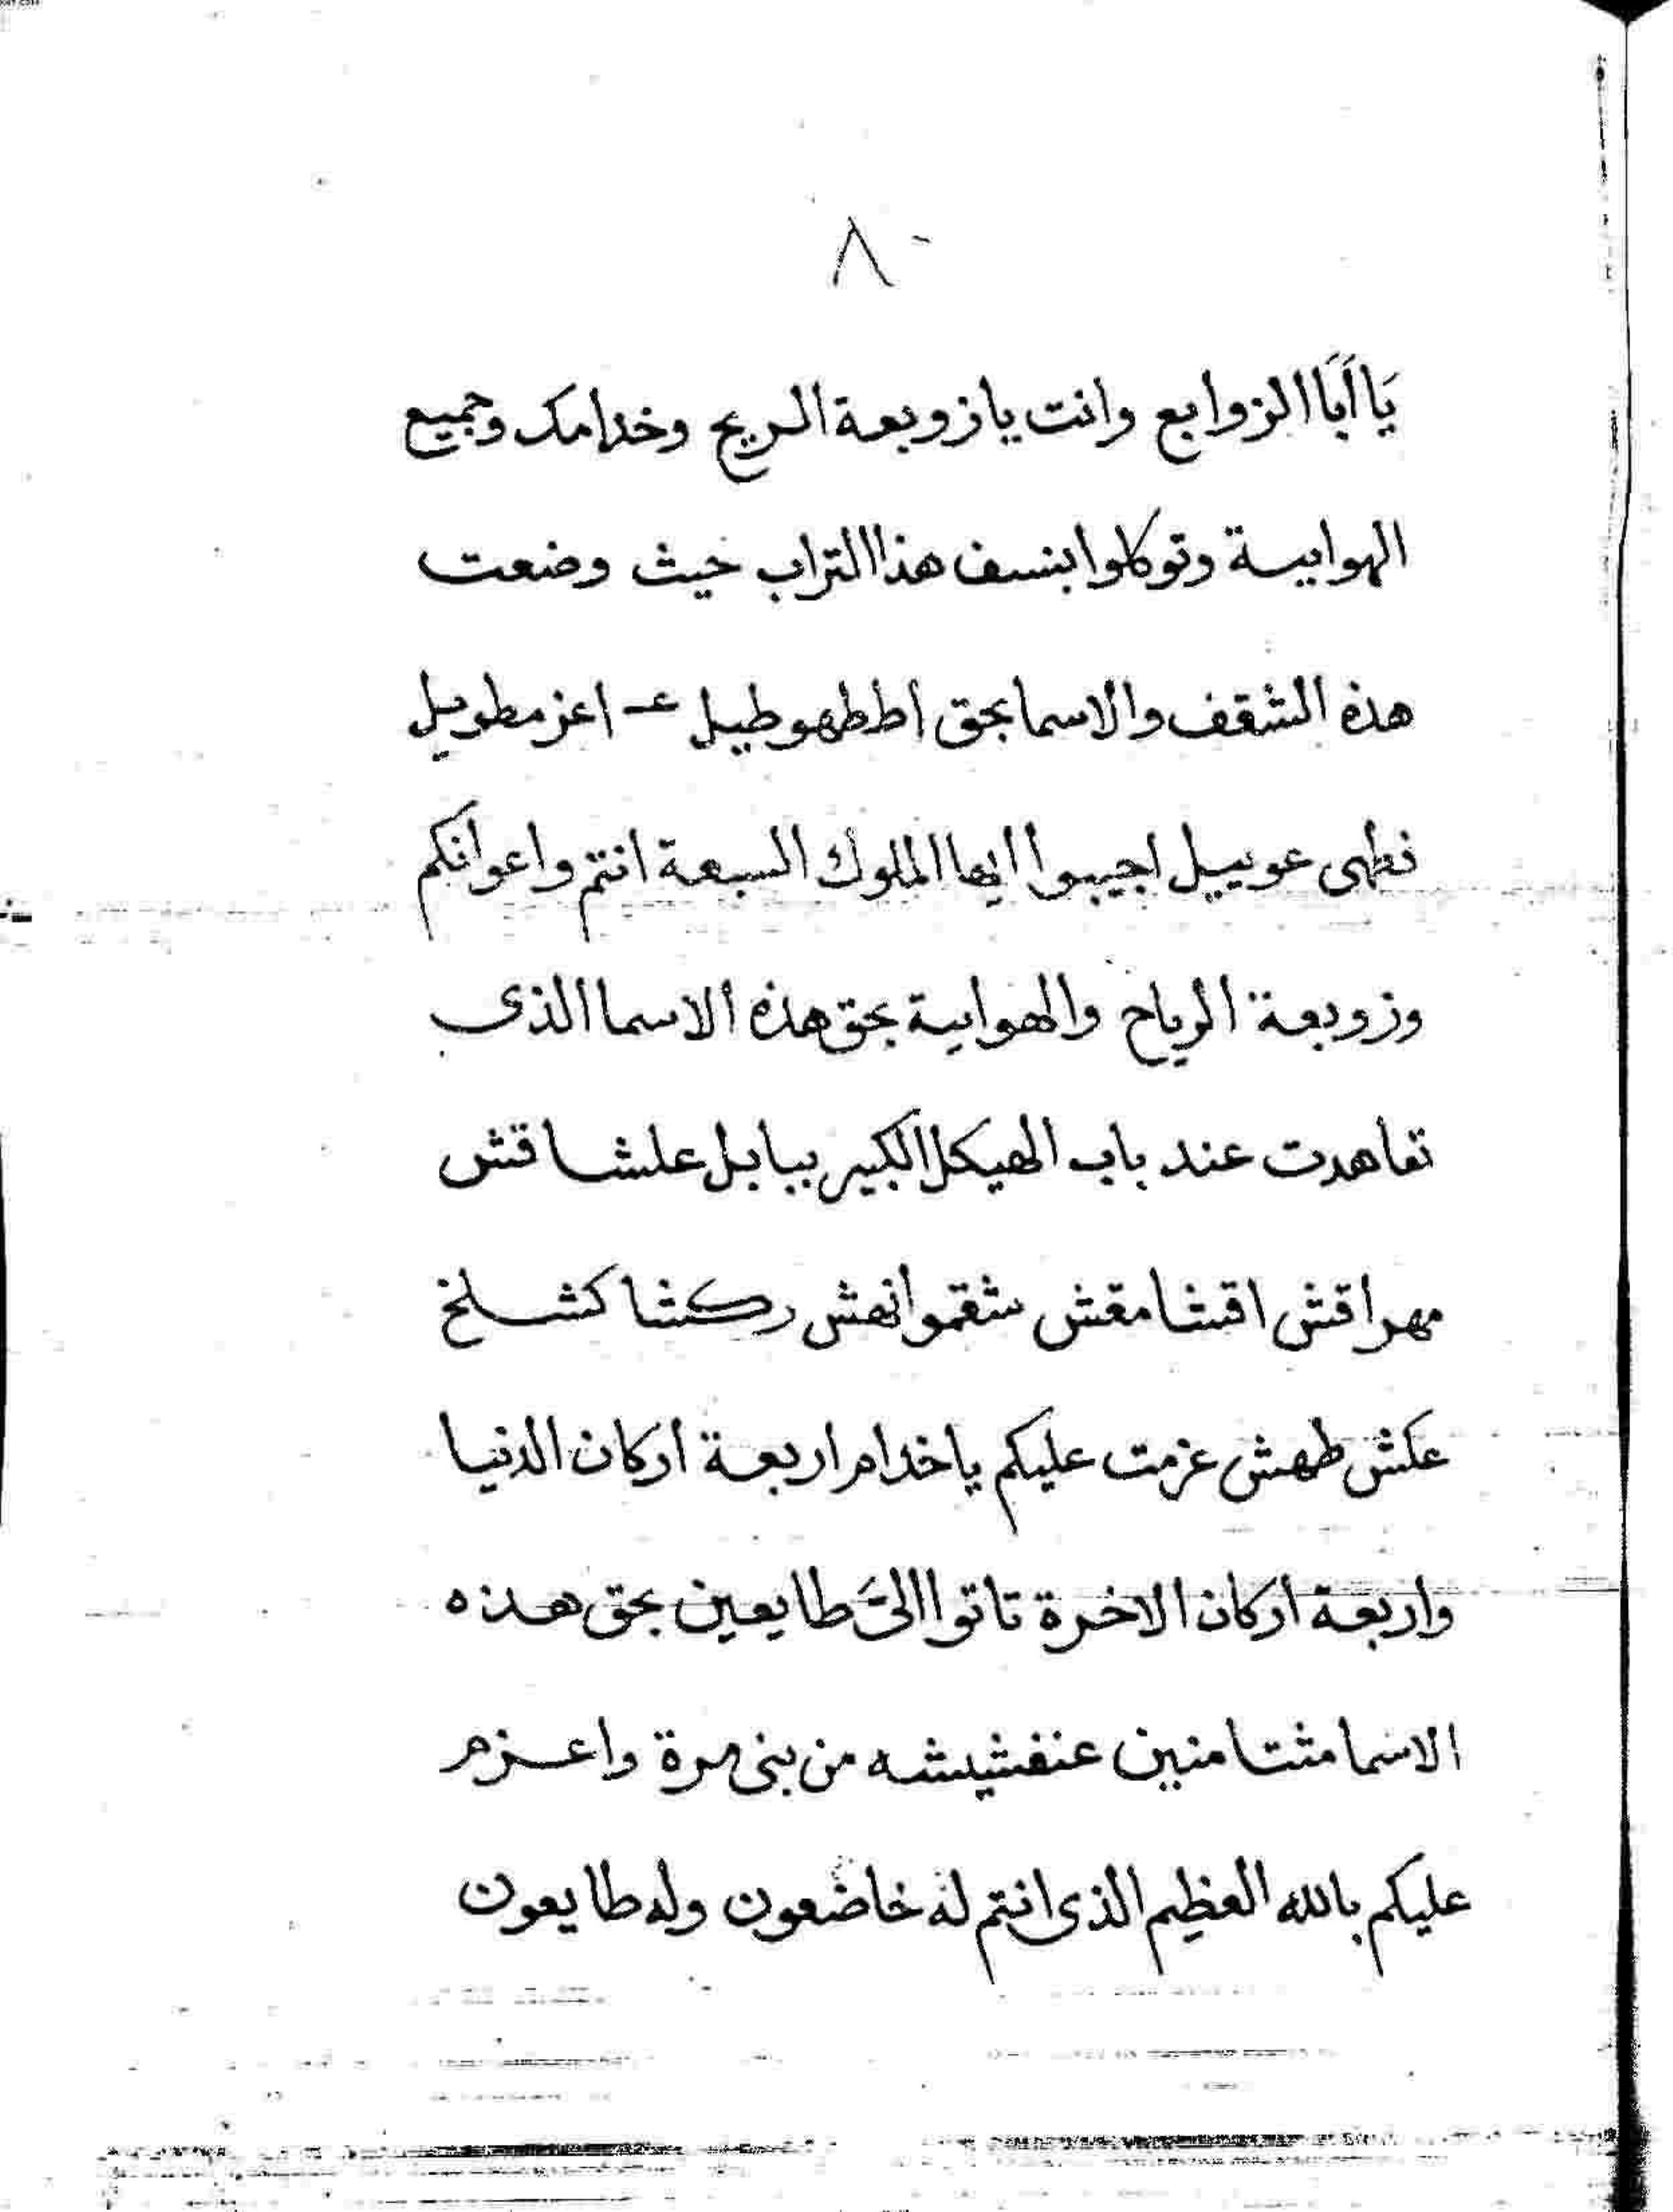 ٨
يَا اَبَا الزوابع وانت يا زوبعة الريح وخدامك وجميع
الهوايية وتوكلوا بنسف هذا التراب حيث وضعت
هذه الشقف والاسما بحق اططهوطيل عـ اعزمطويل
عوييل اجيبوا ايها الملوك السبعة انتم واعوانكم
وزوبعة الرياح والهوايية بحق هذه الاسما الذى
تعاهدت عند باب الهيكل الكبير ببابل علشاقش
مهراقش اقشامقش شقموانهش ركشا كشلخ
عكش طهش عزمت عليكم يا خدام اربعة اركان الدنيا
واربعة اركان الاخرة تاتوا الىَّ طايعين بحق هذه
الاسما من بنى مرة واعزم
عليكم بالله العظيم الذى انتم له خاضعون وله طايعون